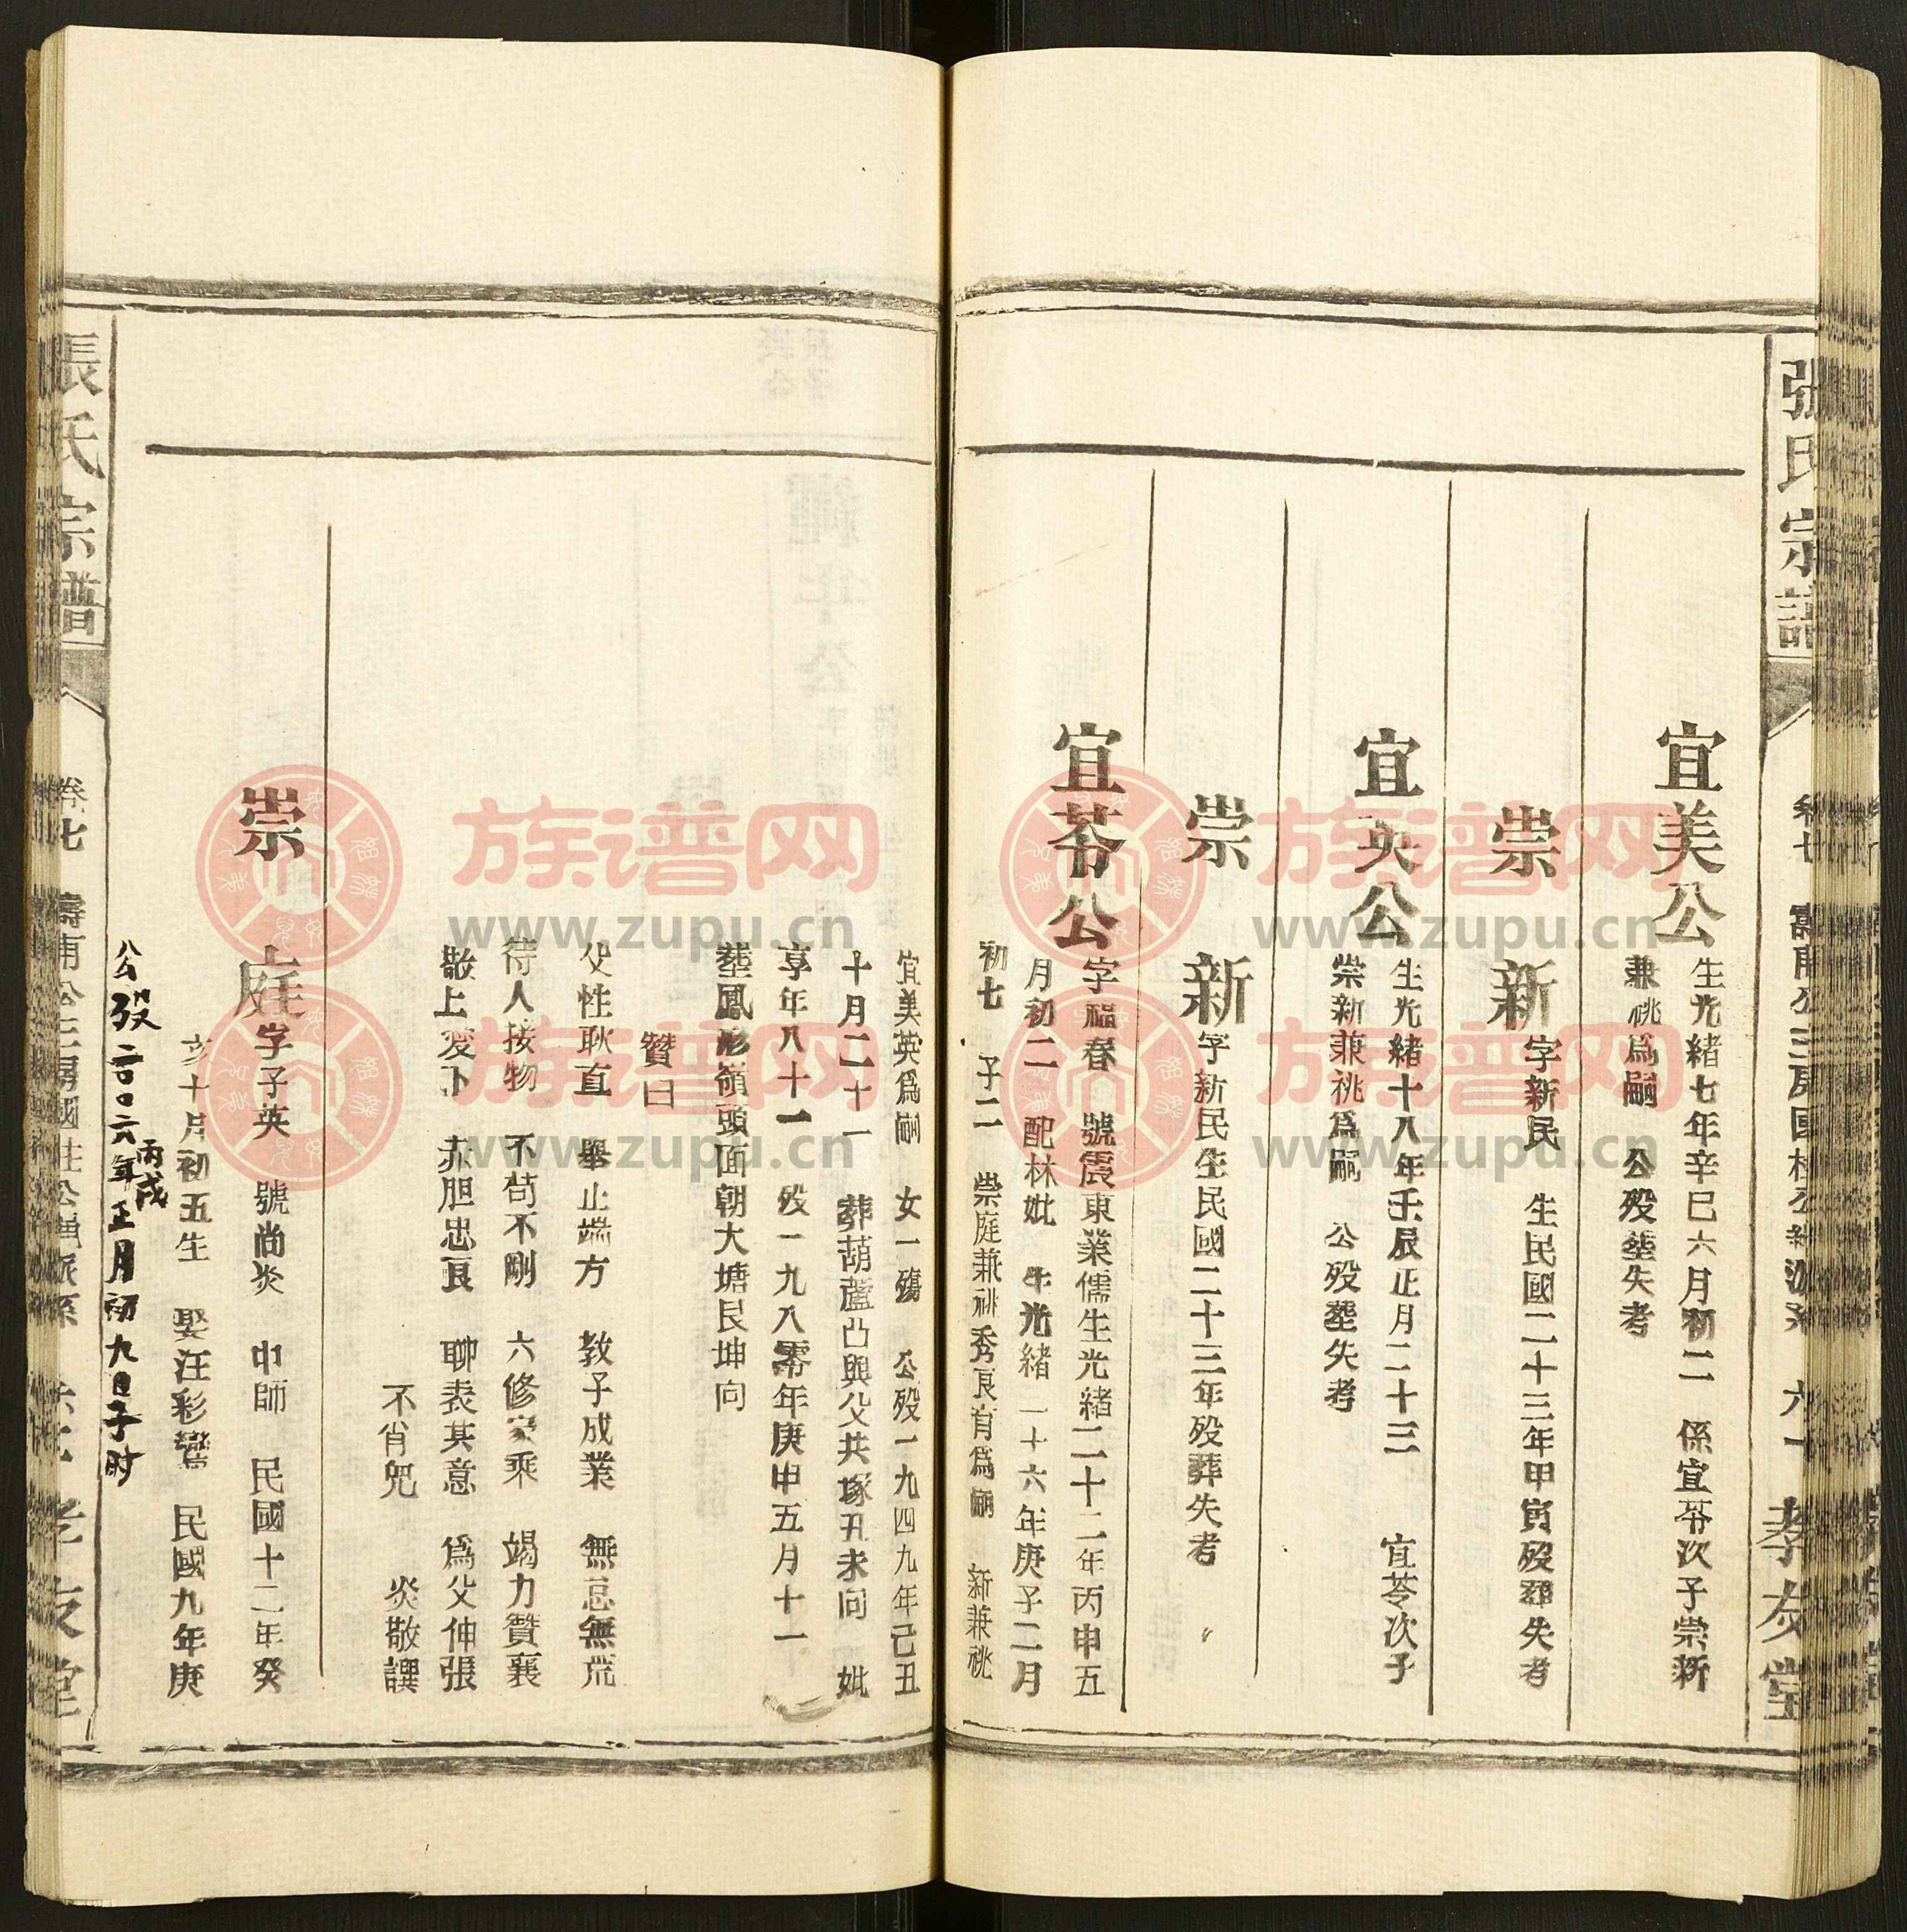 張氏宗譜
宜美公
生光緒七年辛巳六月初二 係宜苓次子崇新
兼祧爲嗣 公歿塟失考
崇新
字新民 生民國二十三年甲寅歿葬失考
宜英公
生光緒十八年壬辰正月二十三 宜苓次子
崇新兼祧爲嗣 公歿塟失考
崇新
字新民生民國二十三年歿葬失考
宜苓公
字福春 號震東業儒生光緒二十二年丙申五
月初二 配林妣 生光緒二十六年庚子二月
初七 子二 崇庭兼祧秀良育爲嗣 新兼祧
孝友堂
宜美英爲嗣 女一殤 公歿一九四九年己丑
十月二十一 葬葫蘆凸與父共塚丑未向 妣
享年八十一 歿一九八零年庚申五月十一
塟鳳形嶺頭面朝大塘艮坤向
贊曰
父性耿直 舉止端方 教子成業 無怠無荒
待人接物 不苟不剛 六修家乘 竭力贊襄
敬上愛下 赤胆忠良 聊表其意 爲父伸張
不肖兒 炎敬譔
崇庭
字子英 號尚炎 中師 民國十二年癸
亥十月初五生 娶汪彩鸞 民國九年庚
公殁二〇〇六年丙戌正月初九日子时
張氏宗譜
卷七
孝友堂
族谱网
www.zupu.cn
族谱网
www.zupu.cn
族谱网
www.zupu.cn
族谱网
www.zupu.cn